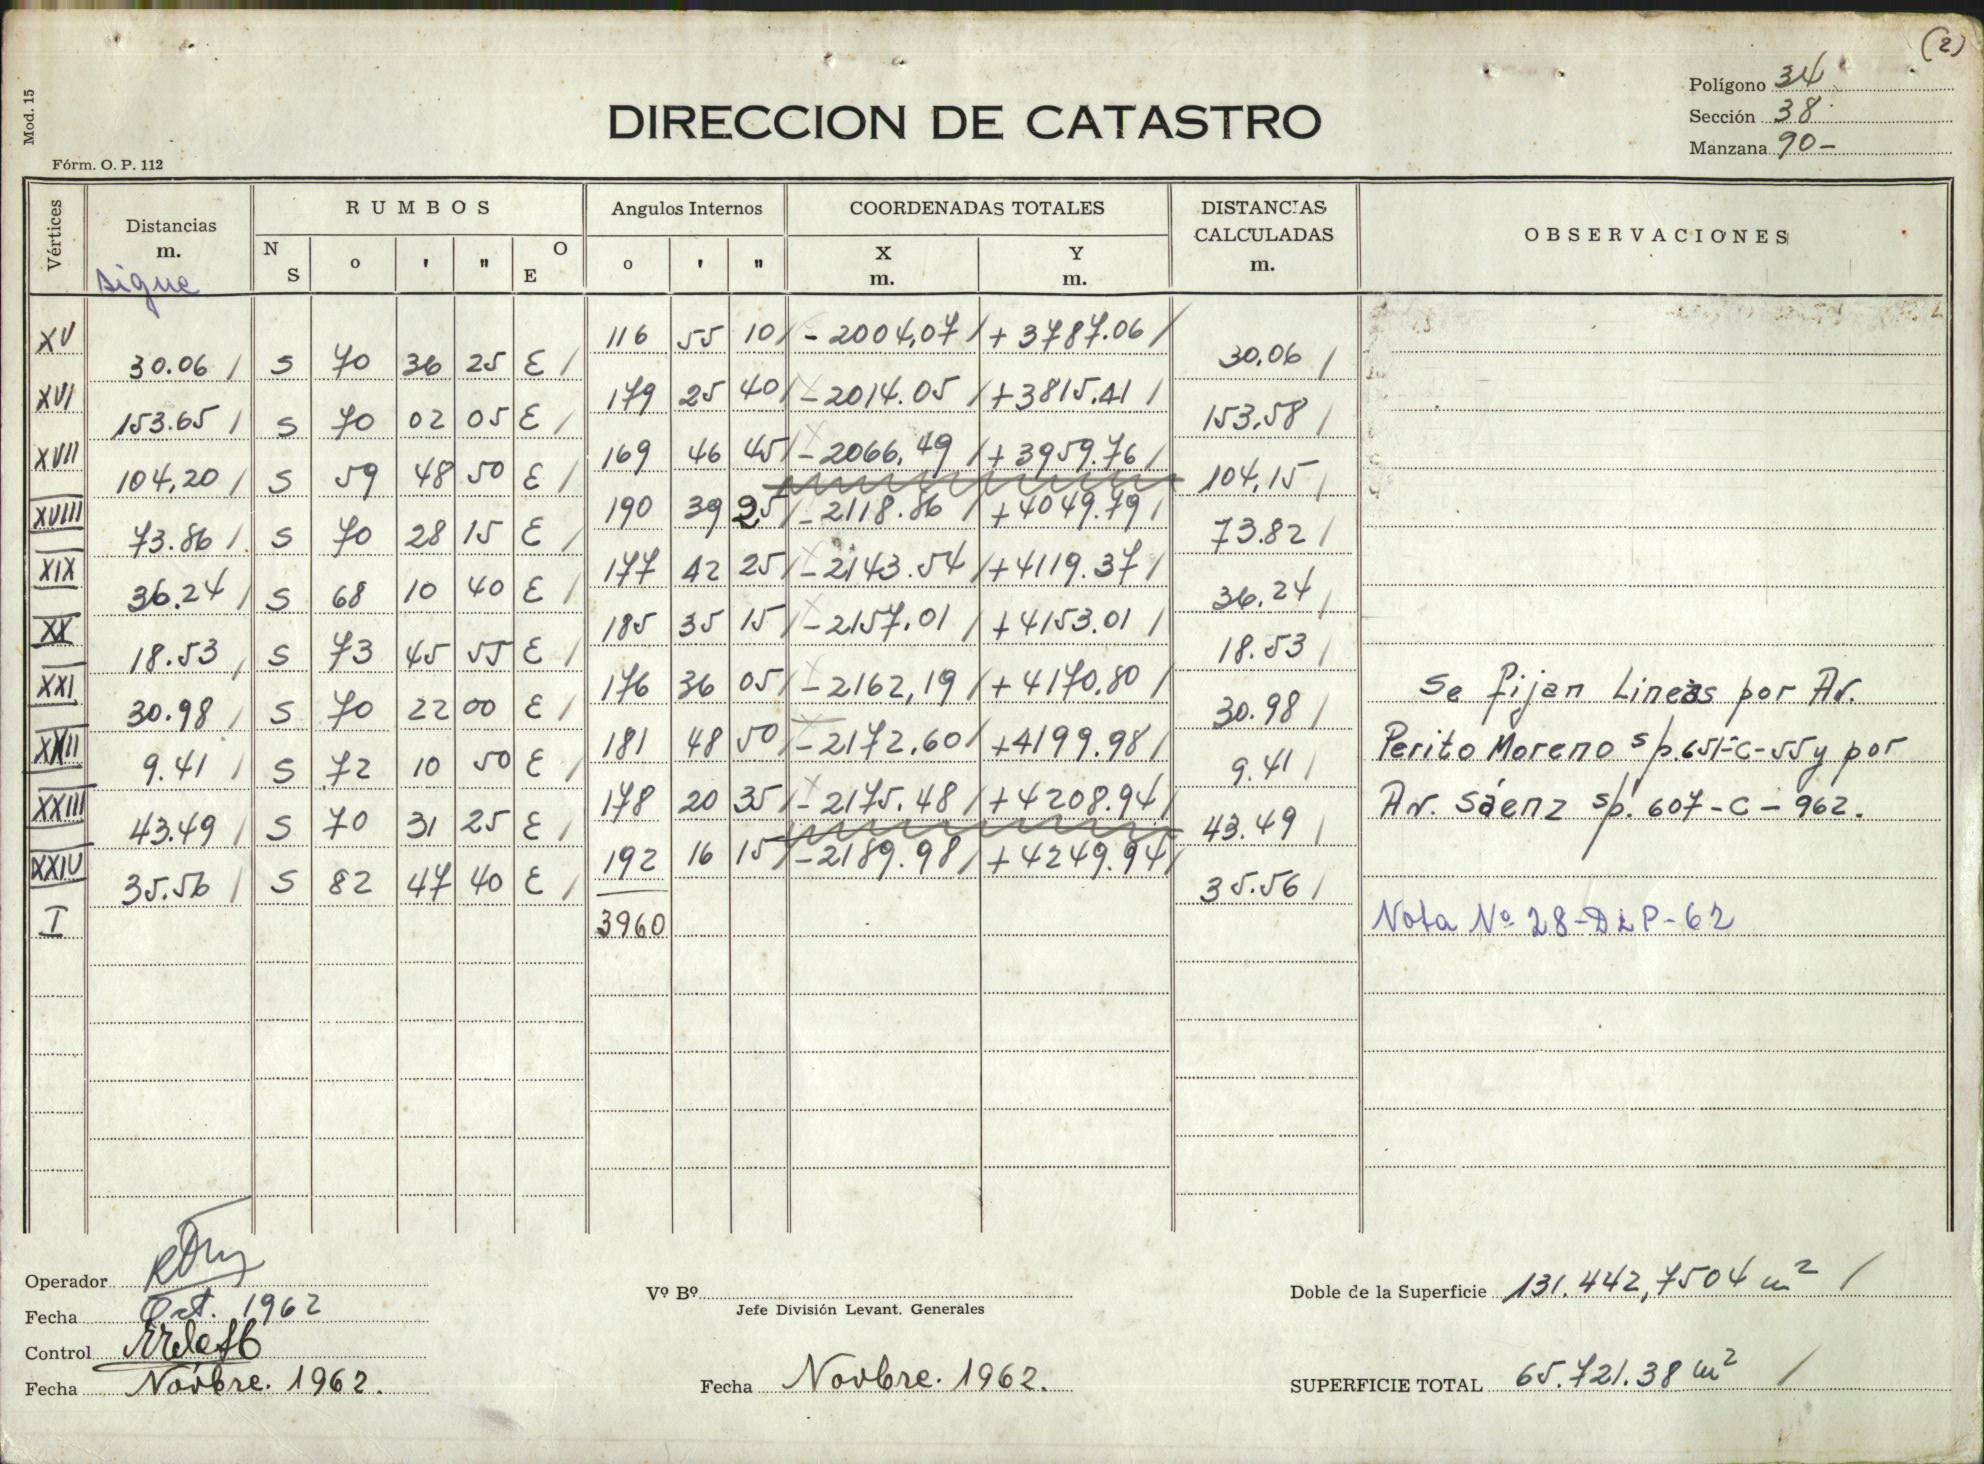 (2)
Mod. 15
Fórm. O. P. 112
DIRECCION DE CATASTRO
Polígono 34
Sección 38
Manzana 90-
Vértices
Distancias
m.
sigue
RUMBOS
N S ° ' " O E
Angulos Internos
° ' "
COORDENADAS TOTALES
X
m.
Y
m.
DISTANCIAS
CALCULADAS
m.
OBSERVACIONES
XV 116 55 10 / - 2004,07 / + 3787.06 /
30.06 / S 70 36 25 E / 30.06 /
XVI 179 25 40 / - 2014.05 / + 3815.41 /
153.65 / S 70 02 05 E / 153.58 /
XVII 169 46 45 / - 2066,49 / + 3959.76 /
104,20 / S 59 48 50 E / 104,15 /
XVIII 190 39 25 / - 2118.86 / + 4049.79 /
73.86 / S 70 28 15 E / 73.82 /
XIX 177 42 25 / - 2143.54 / + 4119.37 /
36.24 / S 68 10 40 E / 36.24 /
XX 185 35 15 / - 2157.01 / + 4153.01 /
18.53 / S 73 45 55 E / 18.53 /
XXI 176 36 05 / - 2162,19 / + 4170.80 /
30.98 / S 70 22 00 E / 30.98 /
XXII 181 48 50 / - 2172.60 / + 4199.98 /
9.41 / S 72 10 50 E / 9.41 /
XXIII 178 20 35 / - 2175.48 / + 4208.94 /
43.49 / S 70 31 25 E / 43.49 /
XXIV 192 16 15 - 2189.98 / + 4249.94 /
35.56 / S 82 47 40 E / 35.56 /
I 3960
Se fijan Lineas por Av.
Perito Moreno s/p.651-C-55 y por
Av. Sáenz s/p. 607-C-962.
Nota Nº 28-DLP-62
Operador
Fecha Oct. 1962
Control
Fecha Novbre. 1962.
Vº Bº
Jefe División Levant. Generales
Fecha Novbre. 1962.
Doble de la Superficie 131.442,7504 m² /
SUPERFICIE TOTAL 65.721.38 m² /